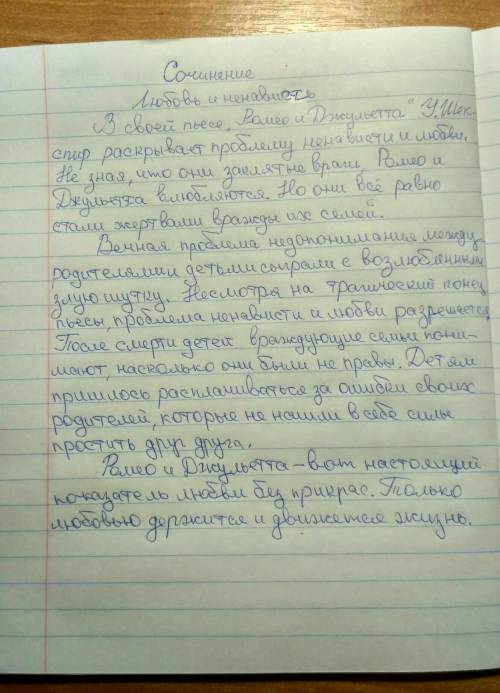 Сочинение
Любовь и ненависть
В своей пьесе „Ромео и Джульетта" У. Шек-
спир раскрывает проблему ненависти и любви.
Не зная, что они заклятые враги, Ромео и
Джульетта влюбляются. Но они всё равно
стали жертвами вражды их семей.
Вечная проблема недопонимания между
родителями и детьми сыграли с возлюбленными
злую шутку. Несмотря на трагический конец
пьесы, проблема ненависти и любви разрешается.
После смерти детей враждующие семьи пони-
мают, насколько они были не правы. Детям
пришлось расплачиваться за ошибки своих
родителей, которые не нашли в себе силы
простить друг друга.
Ромео и Джульетта – вот настоящий
показатель любви без прикрас. Только
любовью держится и движется жизнь.